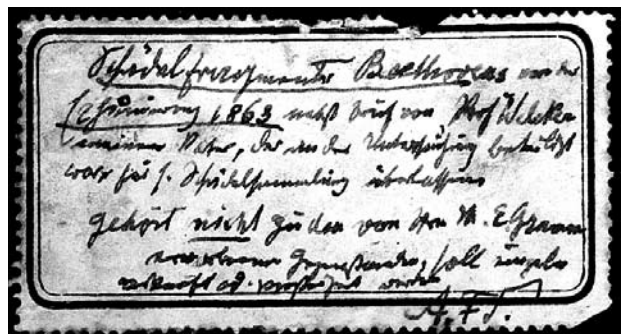 Schädelfragmente Beethovens von der
Exhumierung 1863 nebst Brief von Prof Welcker
meinem Vater, der an der Untersuchung beteiligt
war für s. Schädelsammlung überlassen
gehört nicht zu den von Hrn M. E.
erworbenen Gegenständen, soll
verkauft od. werden
A. F. T.